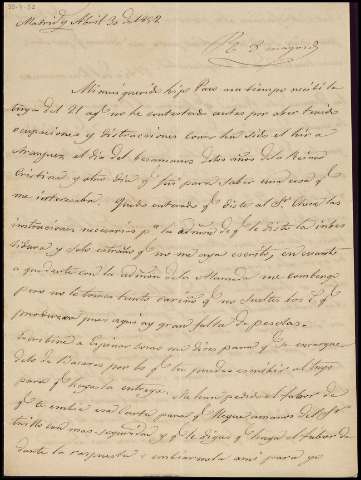 30-4-52
Madrid y Abril 30 de 1852
Rda 8 mayo
Mi mui querido hijo Paco a su tiempo recibi la
tuya del 21 a q no he contestado antes por aber tenido
ocupaciones y distracciones como ha sido el hir a
Aranjuez el dia del besamanos de los años de la Reina
Cristina y otro dia q fui para saber una cosa q
me interesaba. Quedo enterado q diste al Sr. las
instrucciones necesarias pa la admon de q le diste la inbes
tidura y solo extraño q no me aya escrito, en cuanto
a quedarte con la admon de la Alameda me combengo
pero no le tomes tanto cariño q no sueltes los q
produzca pues aqui ay gran falta de pesetas.
Escribiré a Espinar como me dices para q se encargue
de lo de Baeza por lo q le puedes escribir al tuyo
para q haga la entrega. Me han pedido el fabor de
q te embie esa carta para q llegue a manos del
con mas seguridad y q le digas q haga el fabor de
darte la respuesta y embiarmela a mi para yo